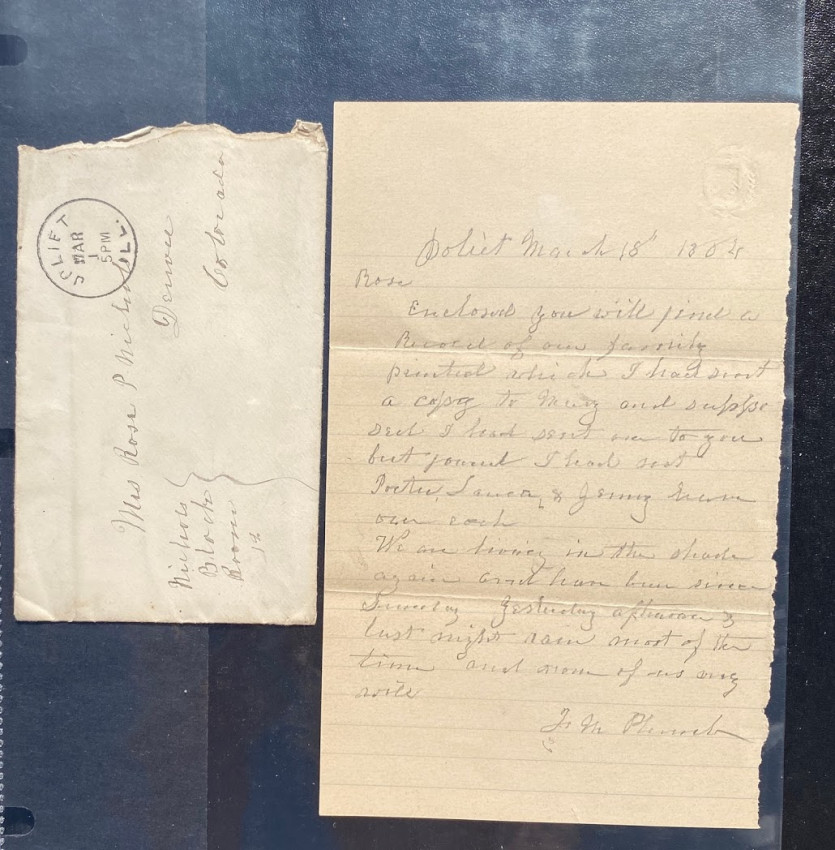 JOLIET
MAR
1
5PM
ILL.
Mrs Rose P Nichols
Denver
Colorado
Nichols
Block
Room
Joliet March 18th
Rose
Enclosed you will find a
Record of our family
printed which I had sent
a copy to Mary and suppo
sed I had sent one to you
but found I had not
Porter, Laura, & Jenny have
one each
We are living in the shade
again and have been since
Sunday Yesterday afternoon &
last night rain most of the
time and none of us very
well